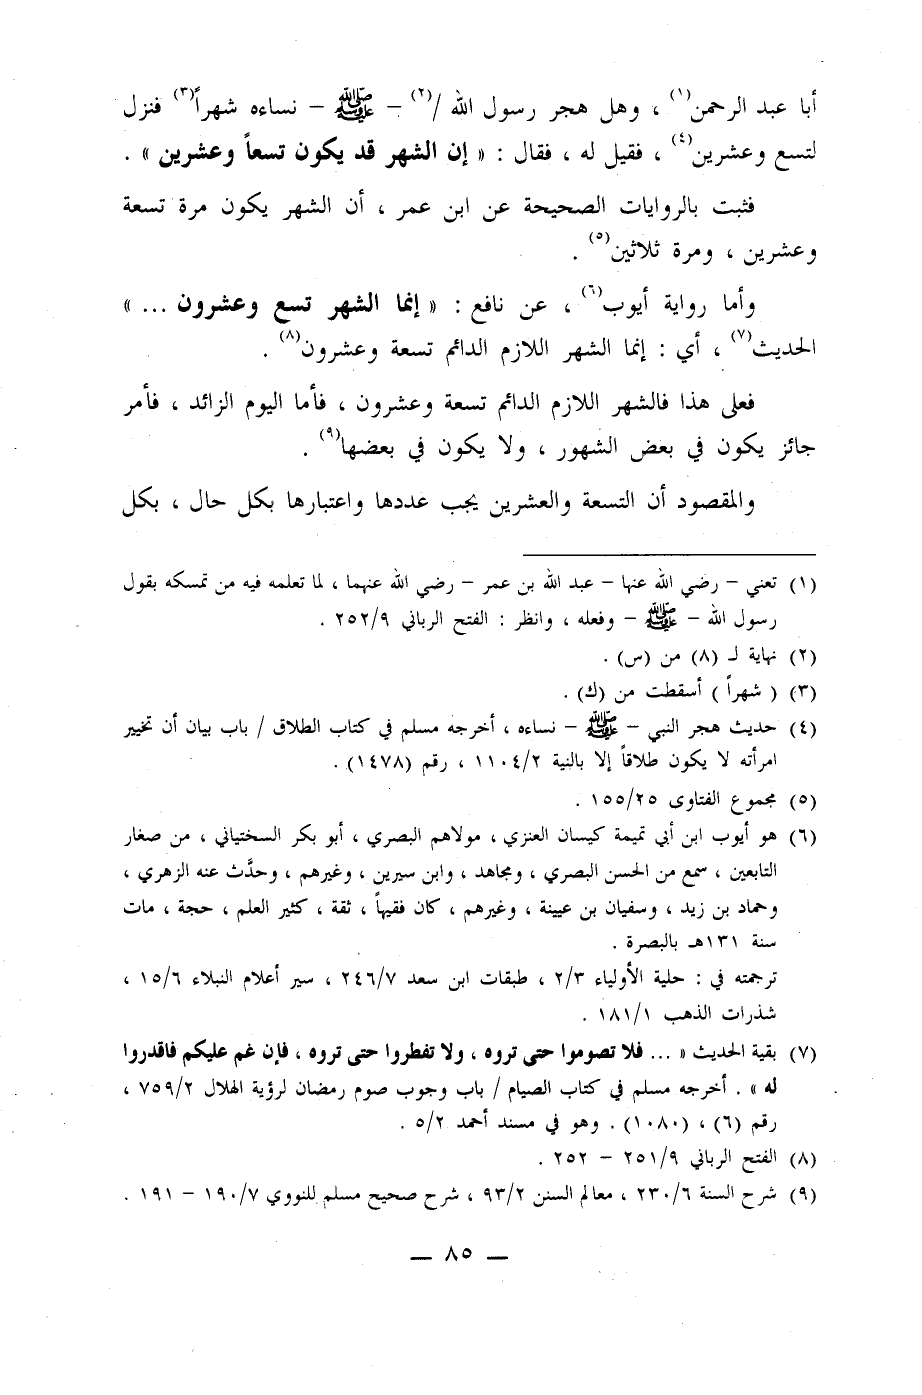 أبا عبد الرحمن(١) ، وهل هجر رسول الله /(٢) – ﷺ – نساءه شهراً(٣) فنزل
لتسع وعشرين(٤) ، فقيل له ، فقال : « إن الشهر قد يكون تسعاً وعشرين » .
فثبت بالروايات الصحيحة عن ابن عمر ، أن الشهر يكون مرة تسعة
وعشرين ، ومرة ثلاثين(٥) .
وأما رواية أيوب(٦) ، عن نافع : « إنما الشهر تسع وعشرون ... »
الحديث(٧) ، أي : إنما الشهر اللازم الدائم تسعة وعشرون(٨) .
فعلى هذا فالشهر اللازم الدائم تسعة وعشرون ، فأما اليوم الزائد ، فأمر
جائز يكون في بعض الشهور ، ولا يكون في بعضها(٩) .
والمقصود أن التسعة والعشرين يجب عددها واعتبارها بكل حال ، بكل
(١) تعني – رضي الله عنها – عبد الله بن عمر – رضي الله عنهما ، لما تعلمه فيه من تمسكه بقول
رسول الله – ﷺ – وفعله ، وانظر : الفتح الرباني ٢٥٢/٩ .
(٢) نهاية لـ (٨) من (س) .
(٣) ( شهراً ) أسقطت من (ك) .
(٤) حديث هجر النبي – ﷺ – نساءه ، أخرجه مسلم في كتاب الطلاق / باب بيان أن تخيير
امرأته لا يكون طلاقاً إلا بالنية ١١٠٤/٢ ، رقم (١٤٧٨) .
(٥) مجموع الفتاوى ١٥٥/٢٥ .
(٦) هو أيوب ابن أبي تميمة كيسان العنزي ، مولاهم البصري ، أبو بكر السختياني ، من صغار
التابعين ، سمع من الحسن البصري ، ومجاهد ، وابن سيرين ، وغيرهم ، وحدَّث عنه الزهري ،
وحماد بن زيد ، وسفيان بن عيينة ، وغيرهم ، كان فقيهاً ، ثقة ، كثير العلم ، حجة ، مات
سنة ١٣١هـ بالبصرة .
ترجمته في : حلية الأولياء ٢/٣ ، طبقات ابن سعد ٢٤٦/٧ ، سير أعلام النبلاء ١٥/٦ ،
شذرات الذهب ١٨١/١ .
(٧) بقية الحديث « ... فلا تصوموا حتى تروه ، ولا تفطروا حتى تروه ، فإن غم عليكم فاقدروا
له » . أخرجه مسلم في كتاب الصيام / باب وجوب صوم رمضان لرؤية الهلال ٧٥٩/٢ ،
رقم (٦) ، (١٠٨٠) . وهو في مسند أحمد ٥/٢ .
(٨) الفتح الرباني ٢٥١/٩ – ٢٥٢ .
(٩) شرح السنة ٢٣٠/٦ ، معالم السنن ٩٣/٢ ، شرح صحيح مسلم للنووي ١٩٠/٧ – ١٩١ .
— ٨٥ —